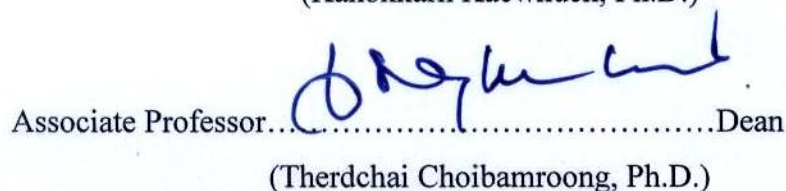 Associate Professor.......................................Dean
(Therdchai Choibamroong, Ph.D.)